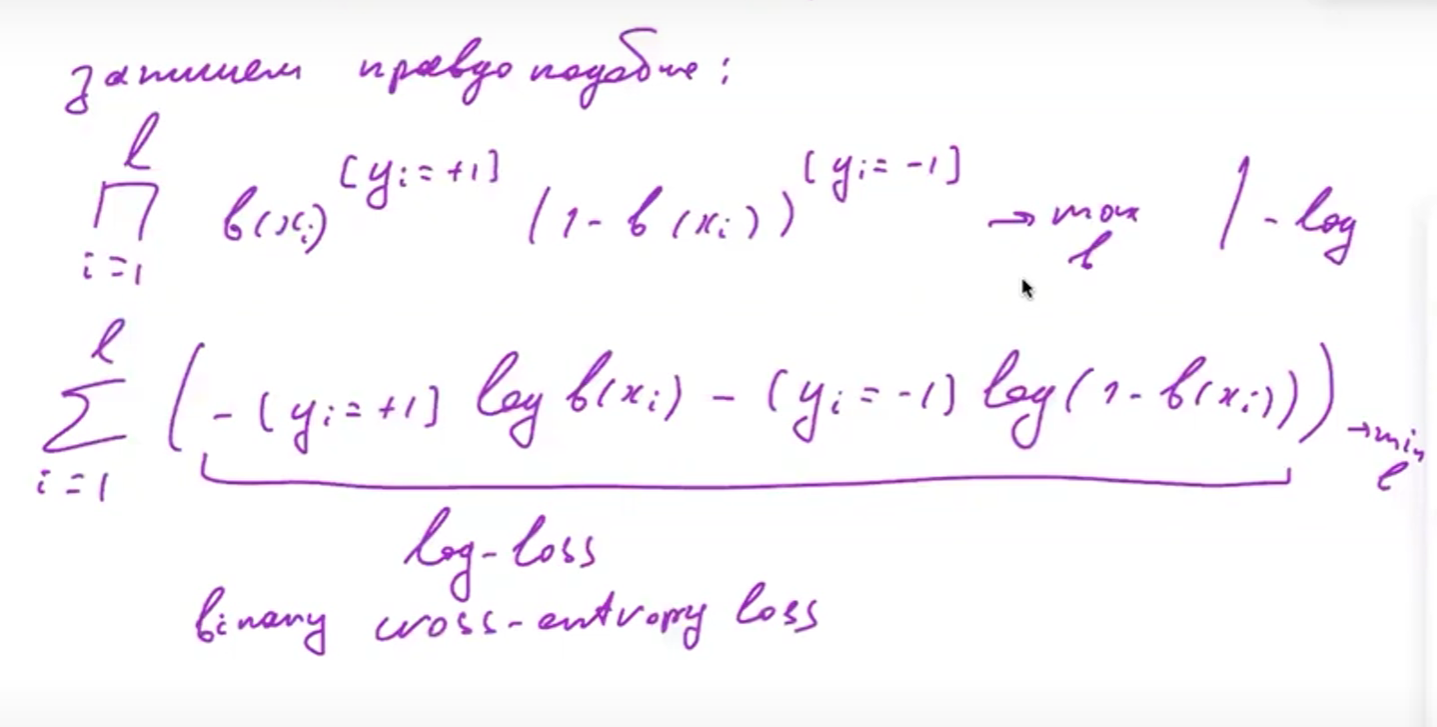 запишем правдоподобие:
∏_{i=1}^{ℓ} b(x_i)^{[y_i = +1]} (1 - b(x_i))^{[y_i = -1]} → max_b | - log
∑_{i=1}^{ℓ} ( - [y_i = +1] log b(x_i) - [y_i = -1] log(1 - b(x_i)) ) → min_b
log-loss
binary cross-entropy loss